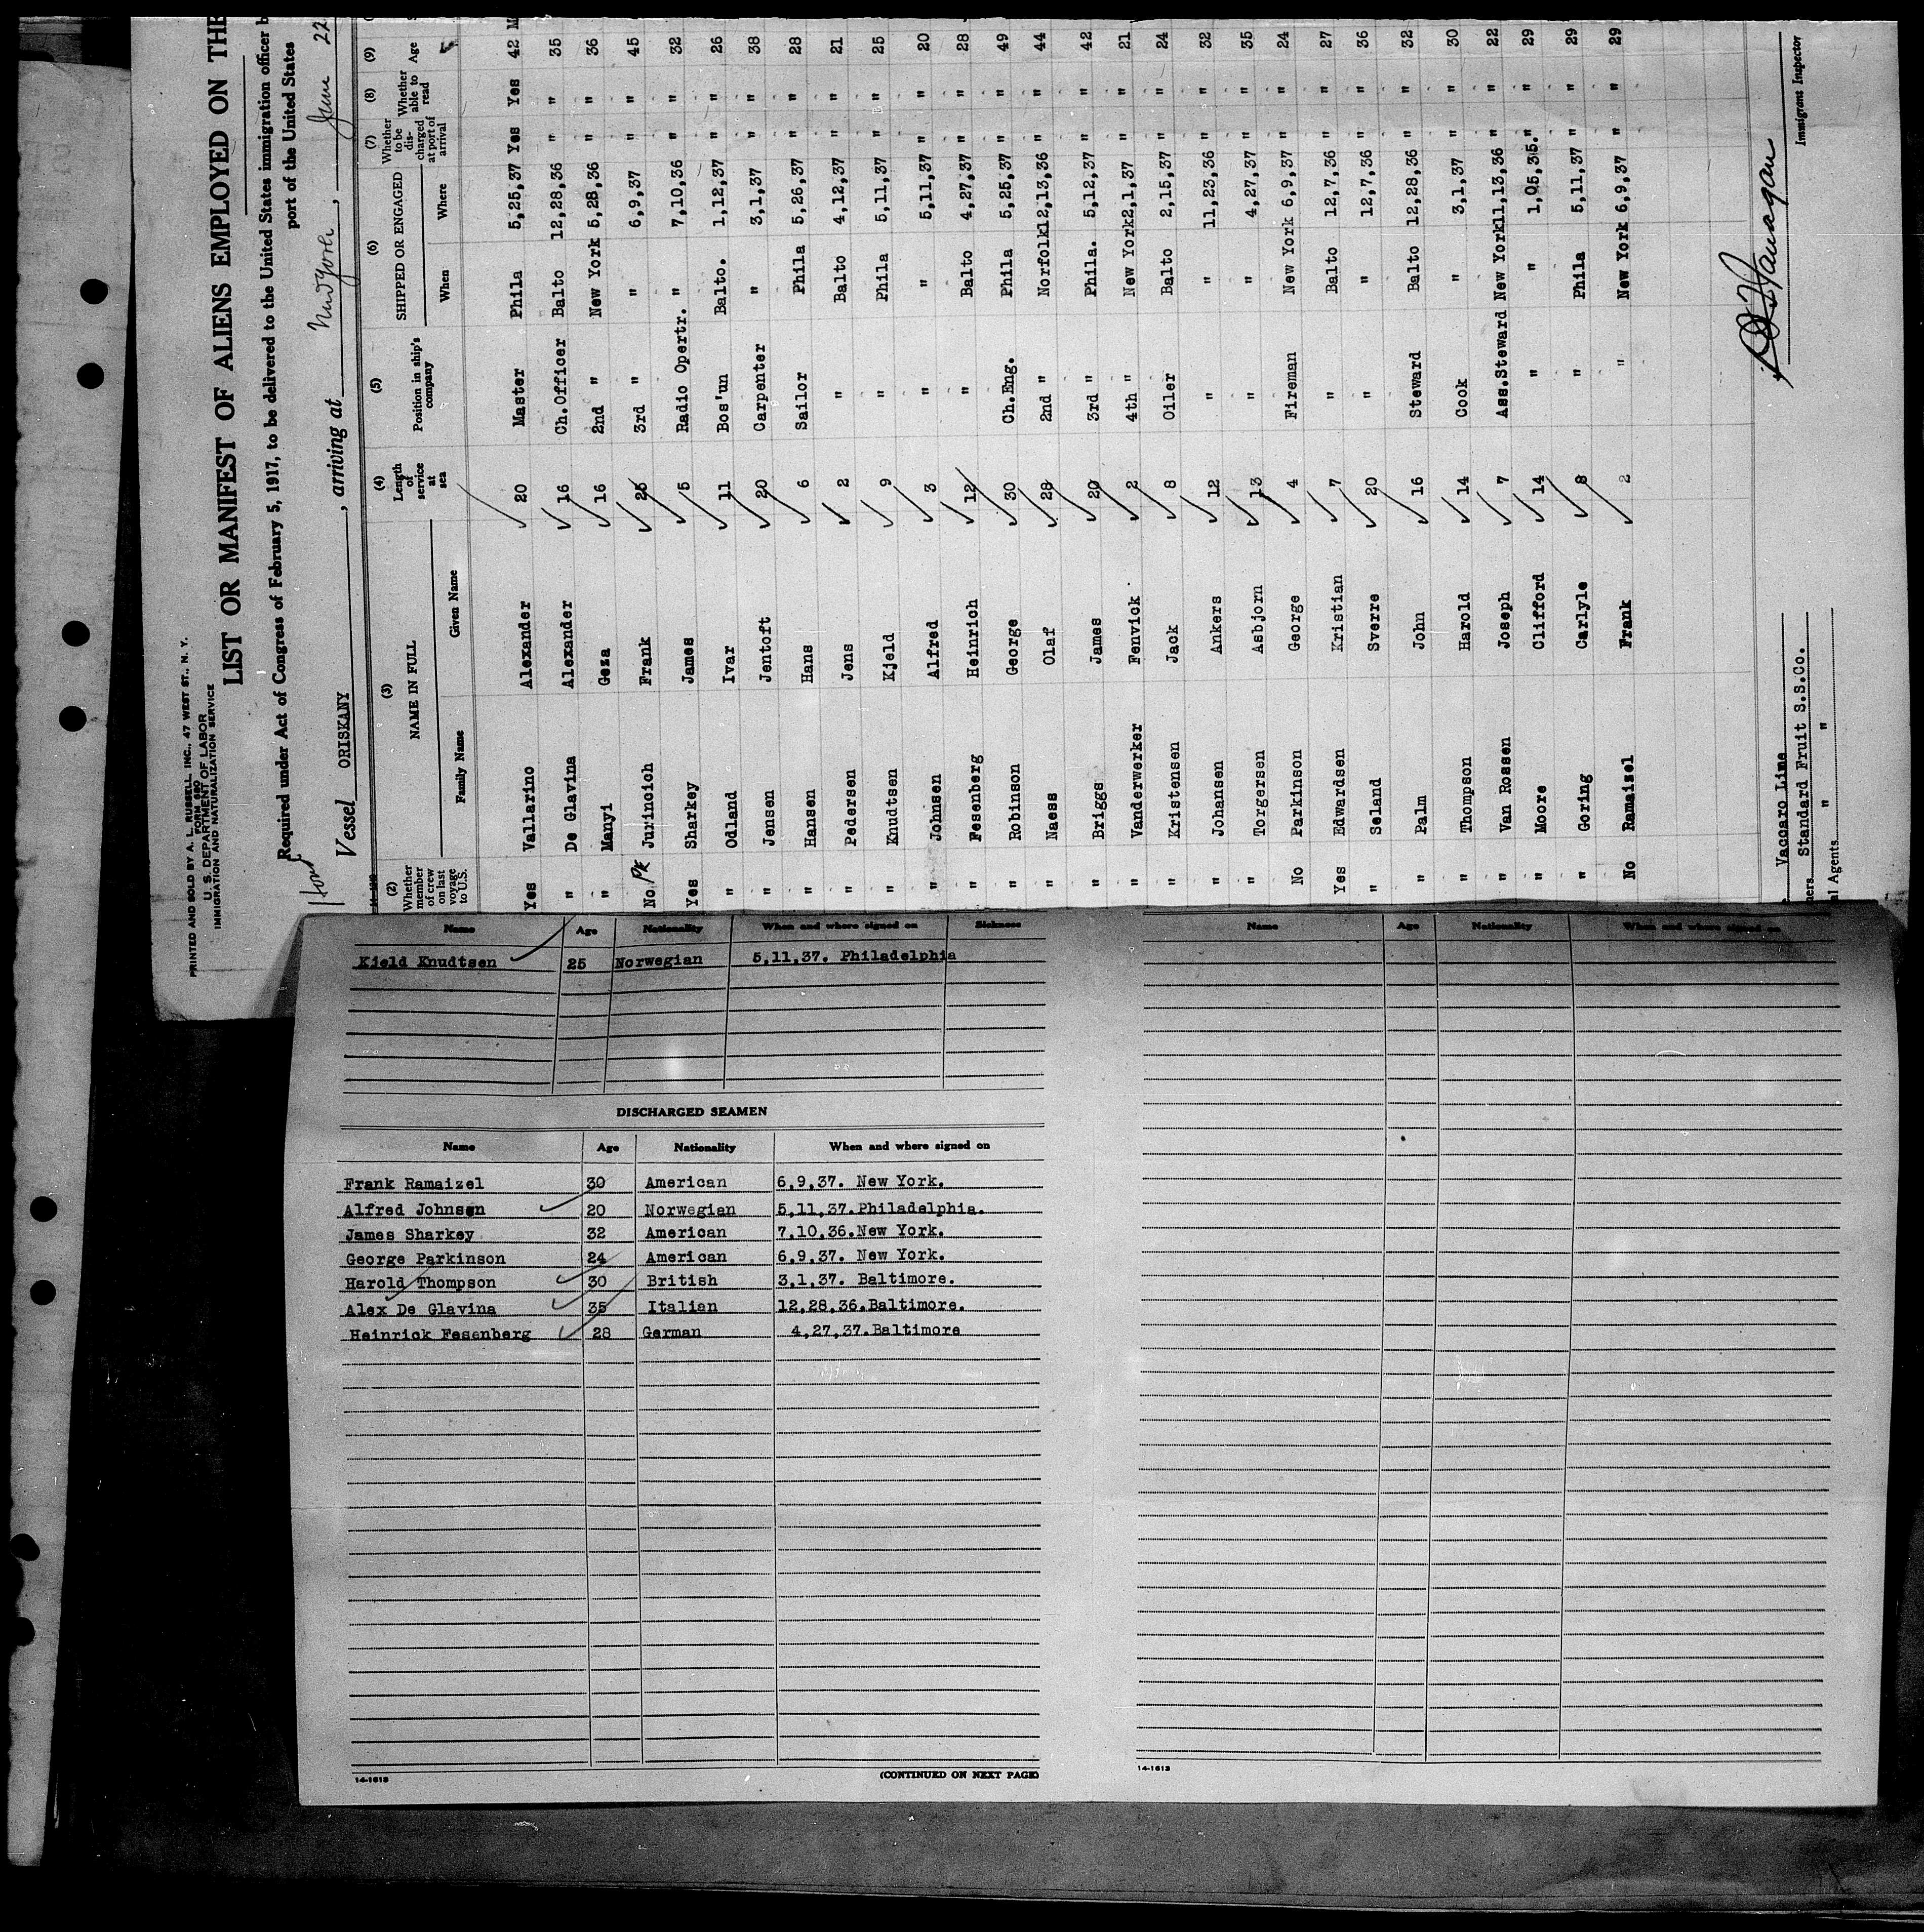 PRINTED AND SOLD BY A. L. RUSSELL, INC., 47 WEST ST., N. Y.
FORM 680
U. S. DEPARTMENT OF LABOR
IMMIGRATION AND NATURALIZATION SERVICE
LIST OR MANIFEST OF ALIENS EMPLOYED ON THE
Required under Act of Congress of February 5, 1917, to be delivered to the United States immigration officer b
port of the United States
Vessel ORISKANY, arriving at New York, June 22
(2) (3) (4) (5) (6) (7) (8) (9)
Whether member of crew on last voyage to U.S. NAME IN FULL Length of service at sea Position in ship's company SHIPPED OR ENGAGED Whether to be discharged at port of arrival Whether able to read Age
Family Name Given Name When Where
Yes Vallarino Alexander 20 Master Phila 5,25,37 Yes Yes 42 M
" De Glavina Alexander 16 Ch.Officer Balto 12,28,36 " " 35
" Manyi Geza 16 2nd " New York 5,28,36 " " 36
No PR Jurincich Frank 25 3rd " " 6,9,37 " " 45
Yes Sharkey James 5 Radio Opertr. " 7,10,36 " " 32
" Odland Ivar 11 Bos'un Balto. 1,12,37 " " 26
" Jensen Jentoft 20 Carpenter " 3,1,37 " " 38
" Hansen Hans 6 Sailor Phila 5,26,37 " " 28
" Pedersen Jens 2 " Balto 4,12,37 " " 21
" Knudtsen Kjeld 9 " Phila 5,11,37 " " 25
" Johnsen Alfred 3 " " 5,11,37 " " 20
" Fesenberg Heinrich 12 " Balto 4,27,37 " " 28
" Robinson George 30 Ch.Eng. Phila 5,25,37 " " 49
" Naess Olaf 28 2nd " Norfolk12,13,36 " " 44
" Briggs James 20 3rd " Phila. 5,12,37 " " 42
" Vanderwerker Fenvick 2 4th " New York2,1,37 " " 21
" Kristensen Jack 8 Oiler Balto 2,15,37 " " 24
" Johansen Ankers 12 " " 11,23,36 " " 32
" Torgersen Asbjorn 13 " " 4,27,37 " " 35
No Parkinson George 4 Fireman New York 6,9,37 " " 24
Yes Edwardsen Kristian 7 " Balto 12,7,36 " " 27
" Seland Sverre 20 " " 12,7,36 " " 36
" Palm John 16 Steward Balto 12,28,36 " " 32
" Thompson Harold 14 Cook " 3,1,37 " " 30
" Van Rossen Joseph 7 Ass.Steward New York11,13,36 " " 22
" Moore Clifford 14 " " 1,05,35." " 29
" Goring Carlyle 8 " Phila 5,11,37 " " 29
No Ramaizel Frank 2 " New York 6,9,37 " " 29
Vaccaro Line
ners Standard Fruit S.S.Co.
l Agents " "
Immigrant Inspector
Name Age Nationality When and where signed on Sickness
Kjeld Knudtsen 25 Norwegian 5,11,37. Philadelphia
DISCHARGED SEAMEN
Name Age Nationality When and where signed on
Frank Ramaizel 30 American 6,9,37. New York.
Alfred Johnsen 20 Norwegian 5,11,37.Philadelphia.
James Sharkey 32 American 7,10,36.New York.
George Parkinson 24 American 6,9,37. New York.
Harold Thompson 30 British 3,1,37. Baltimore.
Alex De Glavina 35 Italian 12,28,36.Baltimore.
Heinrick Fesenberg 28 German 4,27,37.Baltimore
14-1613
(CONTINUED ON NEXT PAGE)
Name Age Nationality When and where signed on
14-1613